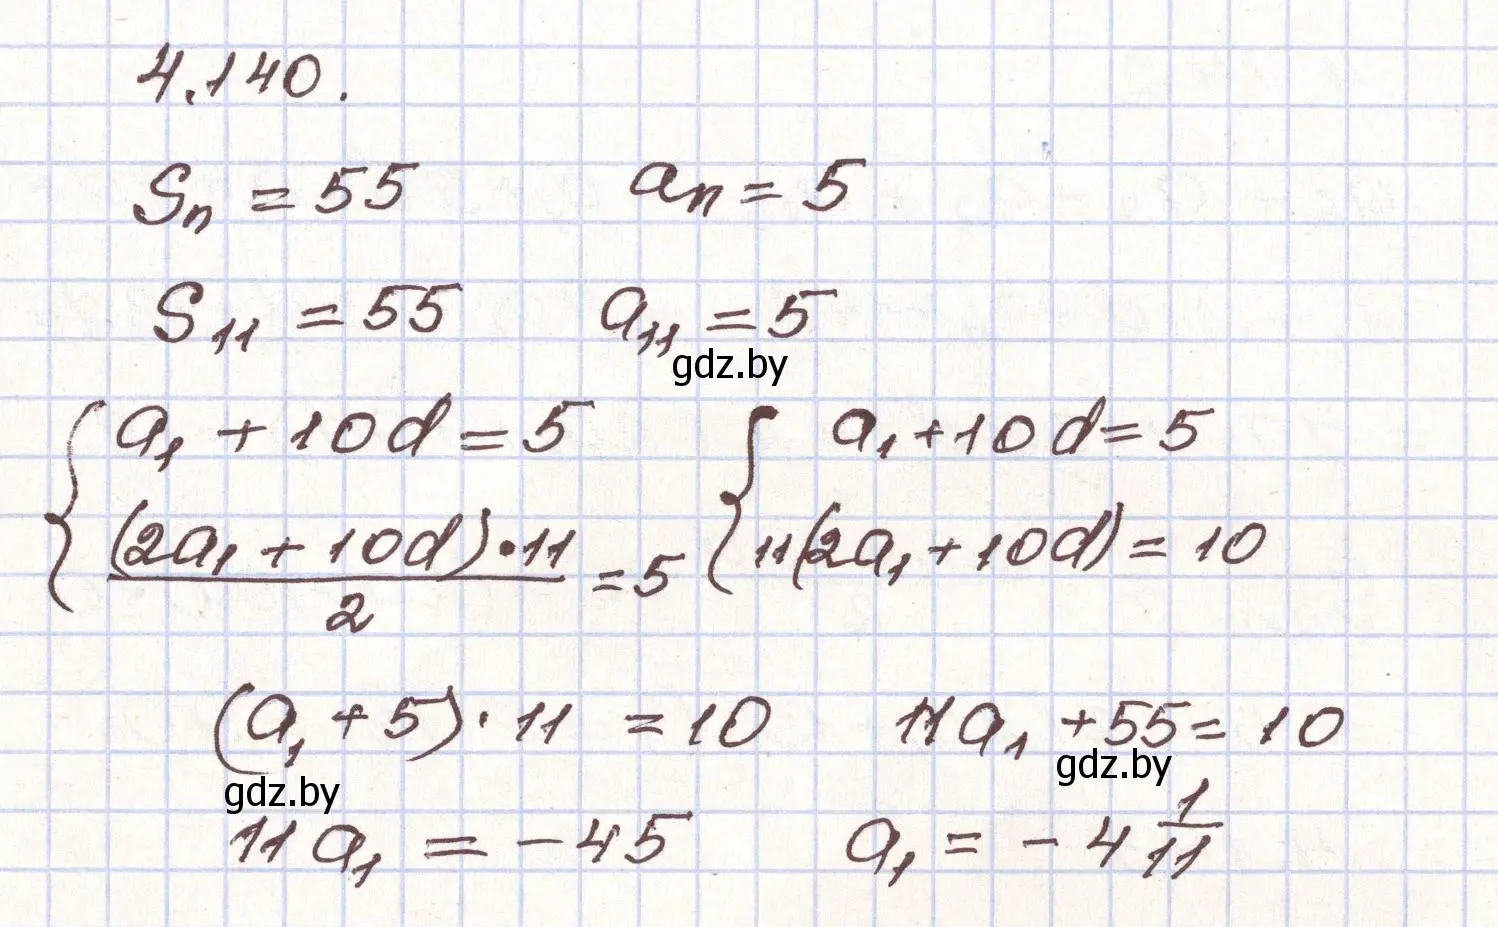 4.140.
Sₙ = 55 aₙ = 5
S₁₁ = 55 a₁₁ = 5
gdz.by
{ a₁ + 10d = 5 { a₁ + 10d = 5
(2a₁ + 10d) · 11 / 2 = 5 11(2a₁ + 10d) = 10
(a₁ + 5) · 11 = 10 11a₁ + 55 = 10
gdz.by gdz.by
11a₁ = -45 a₁ = -4 1/11